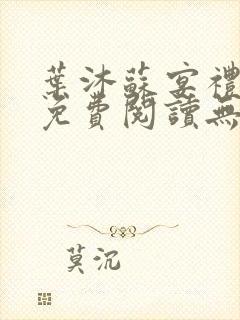 葉沐蘇宴禮
免費閱讀無
莫沉